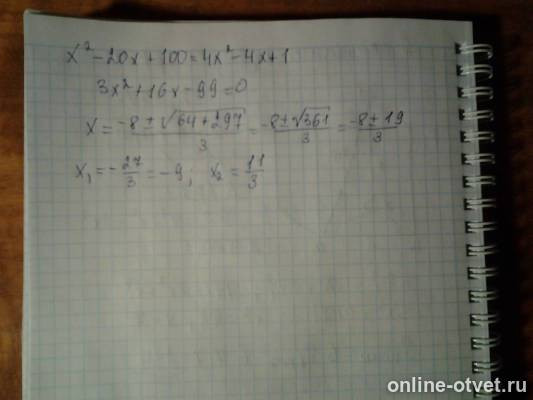 x² - 20x + 100 = 4x² - 4x + 1
3x² + 16x - 99 = 0
x = (-8 ± √(64 + 297))/3 = (-8 ± √361)/3 = (-8 ± 19)/3
x₁ = -27/3 = -9; x₂ = 11/3
online-otvet.ru